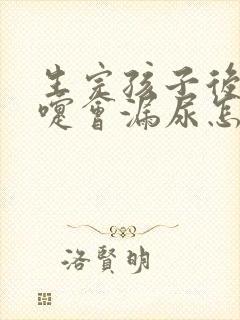 生完孩子後
嚏會漏尿怎
洛賢明